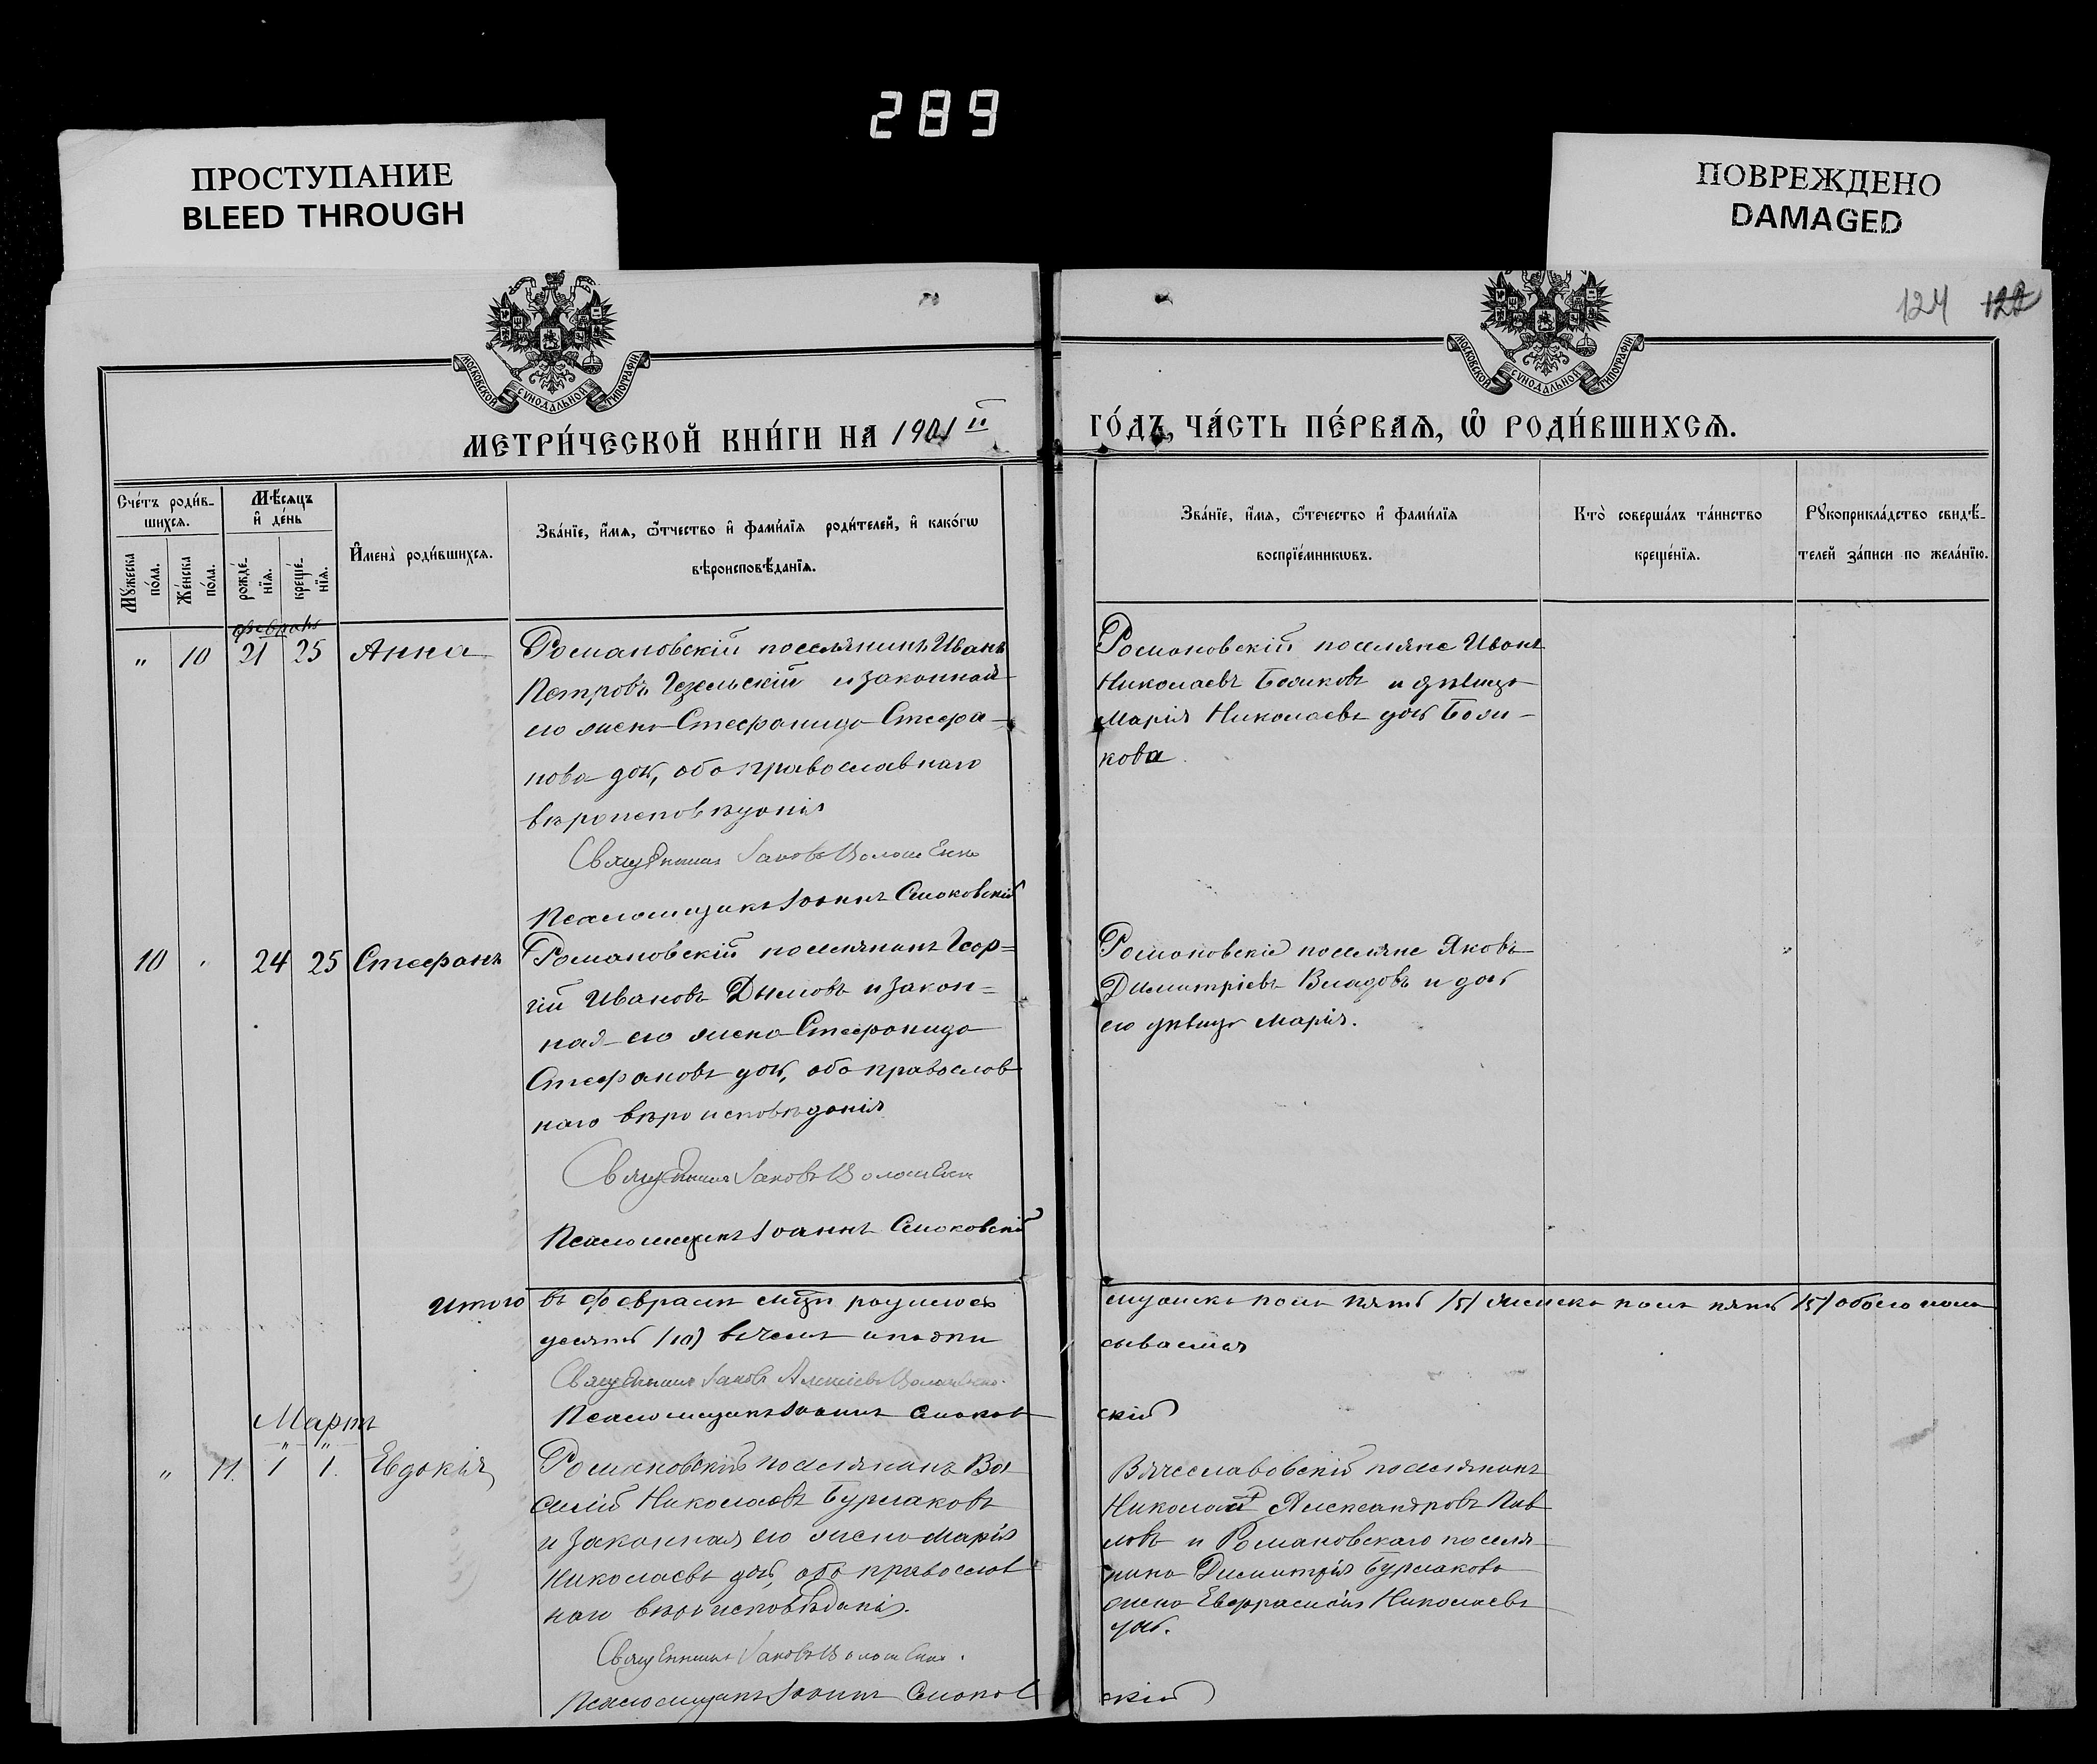 289
ПРОСТУПАНИЕ
BLEED THROUGH
ПОВРЕЖДЕНО
DAMAGED
124 122
МОСКОВСКОЙ СѴНОДАЛЬНОЙ ТИПОГРАФІИ
МОСКОВСКОЙ СѴНОДАЛЬНОЙ ТИПОГРАФІИ
МЕТРИ́ЧЕСКОЙ КНИ́ГИ НА 1901 ГО́ДЪ, ЧА́СТЬ ПЕ́РВАѦ, Ѡ РОДИ́ВШИХСѦ.
Сче́тъ роди́в-
шихсѧ.
Мꙋ́жеска по́ла.
Же́нска по́ла.
Мѣ́сѧцъ
и де́нь
рожде́-
нїѧ.
креще́-
нїѧ.
Имена̀ роди́вшихсѧ.
Зва́нїе, и́мѧ, ѻ́тчество и фами́лїѧ роди́телей, и како́гѡ
вѣроисповѣ́данїѧ.
Зва́нїе, и́мѧ, ѻ́течество и фами́лїѧ
воспрїе́мникѡвъ.
Кто̀ соверша́лъ та́инство
креще́нїѧ.
Рꙋкоприкла́дство свидѣ́-
телей за́писи по жела́нїю.
февраль
" 10 21 25 Анна
Романовскій поселянинъ Иванъ
Петровъ Гезельскій и законная
его жена Стефанида Стефа-
нова доч, оба православнаго
вѣроисповѣданія
Священникъ Іаковъ Волошенко
Псаломщикъ Іоаннъ Смоковскій
Романовскій поселяне Иванъ
Николаевъ Боликовъ и дѣвица
Марія Николаева доч Боли-
кова
10 " 24 25 Стефанъ
Романовскій поселянинъ Геор=
гій Ивановъ Дымовъ и закон=
ная его жена Стефанида
Стефанова доч, оба православ
наго вѣроисповѣданія
Священникъ Іаковъ Волошенко
Псаломщикъ Іоаннъ Смоковскій
Романовскіе поселяне Яковъ
Димитріевъ Владовъ и доч
его дѣвица Марія.
Итого въ февралѣ мцѣ родилось мужска пола пять /5/ женска пола пять /5/ обоего пола
десять /10/ въ чемъ и подписывается
Священникъ Іаковъ Алексіевъ Волошенко
Псаломщикъ Іоаннъ Смоковскій
Мартъ
" 11. 1 1. Евдокія
Романовскій поселянинъ Ва
силій Николаевъ Бурлаковъ
и законная его жена Марія
Николаева доч, оба православ
наго вѣроисповѣданія.
Священникъ Іаковъ Волошенко.
Псаломщикъ Іоаннъ Смоковскій
Вячеславовскій поселянинъ
Николай Александровъ Пав
ловъ и Романовскаго поселя
нина Димитрія Бурлакова
жена Евфрасинія Николаева
доч.